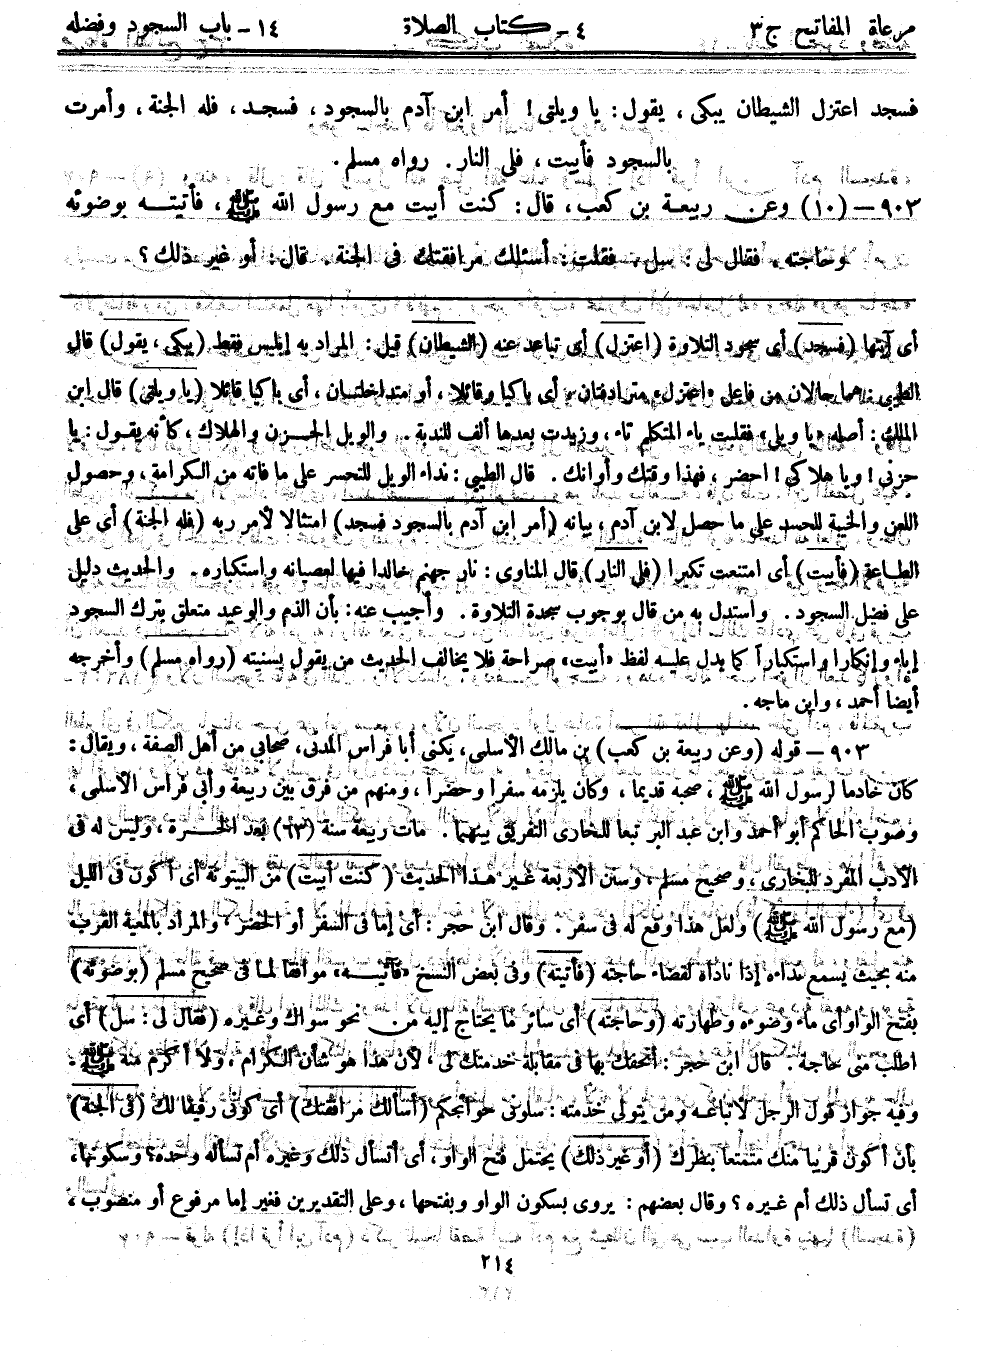 مرعاة المفاتيح ج ٣ ٤ - كتاب الصلاة ١٤ - باب السجود وفضله
فسجد اعتزل الشيطان يبكى ، يقول : يا ويلتى ! أمر ابن آدم بالسجود ، فسجد ، فله الجنة ، وأمرت
بالسجود فأبيت ، فلى النار . رواه مسلم .
٩٠٣ - (١٠) وعن ربيعة بن كعب ، قال : كنت أبيت مع رسول الله ﷺ ، فأتيته بوضوئه
وحاجته ، فقال لى : سل ، فقلت : أسئلك مرافقتك فى الجنة . قال : أو غير ذلك ؟
أى آيتها (فسجد) أى سجود التلاوة (اعتزل) أى تباعد عنه (الشيطان) قيل : المراد به إبليس فقط (يبكى ، يقول) قال
الطيبى : هما حالان من فاعل «اعتزل» مترادفتان ، أى باكيا وقائلا ، أو متداخلتان ، أى باكيا قائلا (يا ويلتى) قال ابن
الملك : أصله «يا ويلى» فقلبت ياء المتكلم تاء ، وزيدت بعدها ألف للندبة . والويل الحزن والهلاك ، كأنه يقول : يا
حزنى ! ويا هلاكى ! احضر ، فهذا وقتك وأوانك . قال الطيبى : نداء الويل للتحسر على ما فاته من الكرامة ، وحصول
اللعن والخيبة للحسد على ما حصل لابن آدم ، بيانه (أمر ابن آدم بالسجود فسجد) امتثالا لأمر ربه (فله الجنة) أى على
الطاعة (فأبيت) أى امتنعت تكبرا (فلى النار) قال المناوى : نار جهنم خالدا فيها لعصيانه واستكباره . والحديث دليل
على فضل السجود . واستدل به من قال بوجوب سجدة التلاوة . وأجيب عنه : بأن الذم والوعيد متعلق بترك السجود
إباء وإنكارا واستكباراً كما يدل عليه لفظ «أبيت» صراحة فلا يخالف الحديث من يقول بسنيته (رواه مسلم) وأخرجه
أيضا أحمد ، وابن ماجه .
٩٠٣ - قوله (وعن ربيعة بن كعب) بن مالك الأسلمى ، يكنى أبا فراس المدنى ، صحابى من أهل الصفة ، ويقال :
كان خادما لرسول الله ﷺ ، صحبه قديما ، وكان يلزمه سفرا وحضرا ، ومنهم من فرق بين ربيعة وأبى فراس الأسلمى ،
وصوب الحاكم أبو أحمد وابن عبد البر تبعا للبخارى التفريق بينهما . مات ربيعة سنة (٦٣) بعد الحرة ، وليس له فى
الأدب المفرد للبخارى ، وصحيح مسلم ، وسنن الأربعة غير هذا الحديث (كنت أبيت) من البيتوتة أى أكون فى الليل
(مع رسول الله ﷺ) ولعل هذا وقع له فى سفر . وقال ابن حجر : أى إما فى السفر أو الحضر ، والمراد بالمعية القرب
منه بحيث يسمع نداءه إذا ناداه لقضاء حاجته (فأتيته) وفى بعض النسخ «فآتيه» موافقا لما فى صحيح مسلم (بوضوئه)
بفتح الواو أى ماء وضوءه وطهارته (وحاجته) أى سائر ما يحتاج إليه من نحو سواك وغيره (فقال لى : سل) أى
اطلب منى حاجة . قال ابن حجر : أتحفك بها فى مقابلة خدمتك لى ، لأن هذا هو شأن الكرام ، ولا أكرم منه ﷺ .
وفيه جواز قول الرجل لأتباعه ومن يتولى خدمته : سلونى حوائجكم (أسألك مرافقتك) أى كونى رفيقا لك (فى الجنة)
بأن أكون قريبا منك متمتعا بنظرك (أو غير ذلك) يحتمل فتح الواو ، أى أتسأل ذلك وغيره أم تسأله وحده؟ وسكونها ،
أى تسأل ذلك أم غيره ؟ وقال بعضهم : يروى بسكون الواو وبفتحها ، وعلى التقديرين فغير إما مرفوع أو منصوب ،
٢١٤